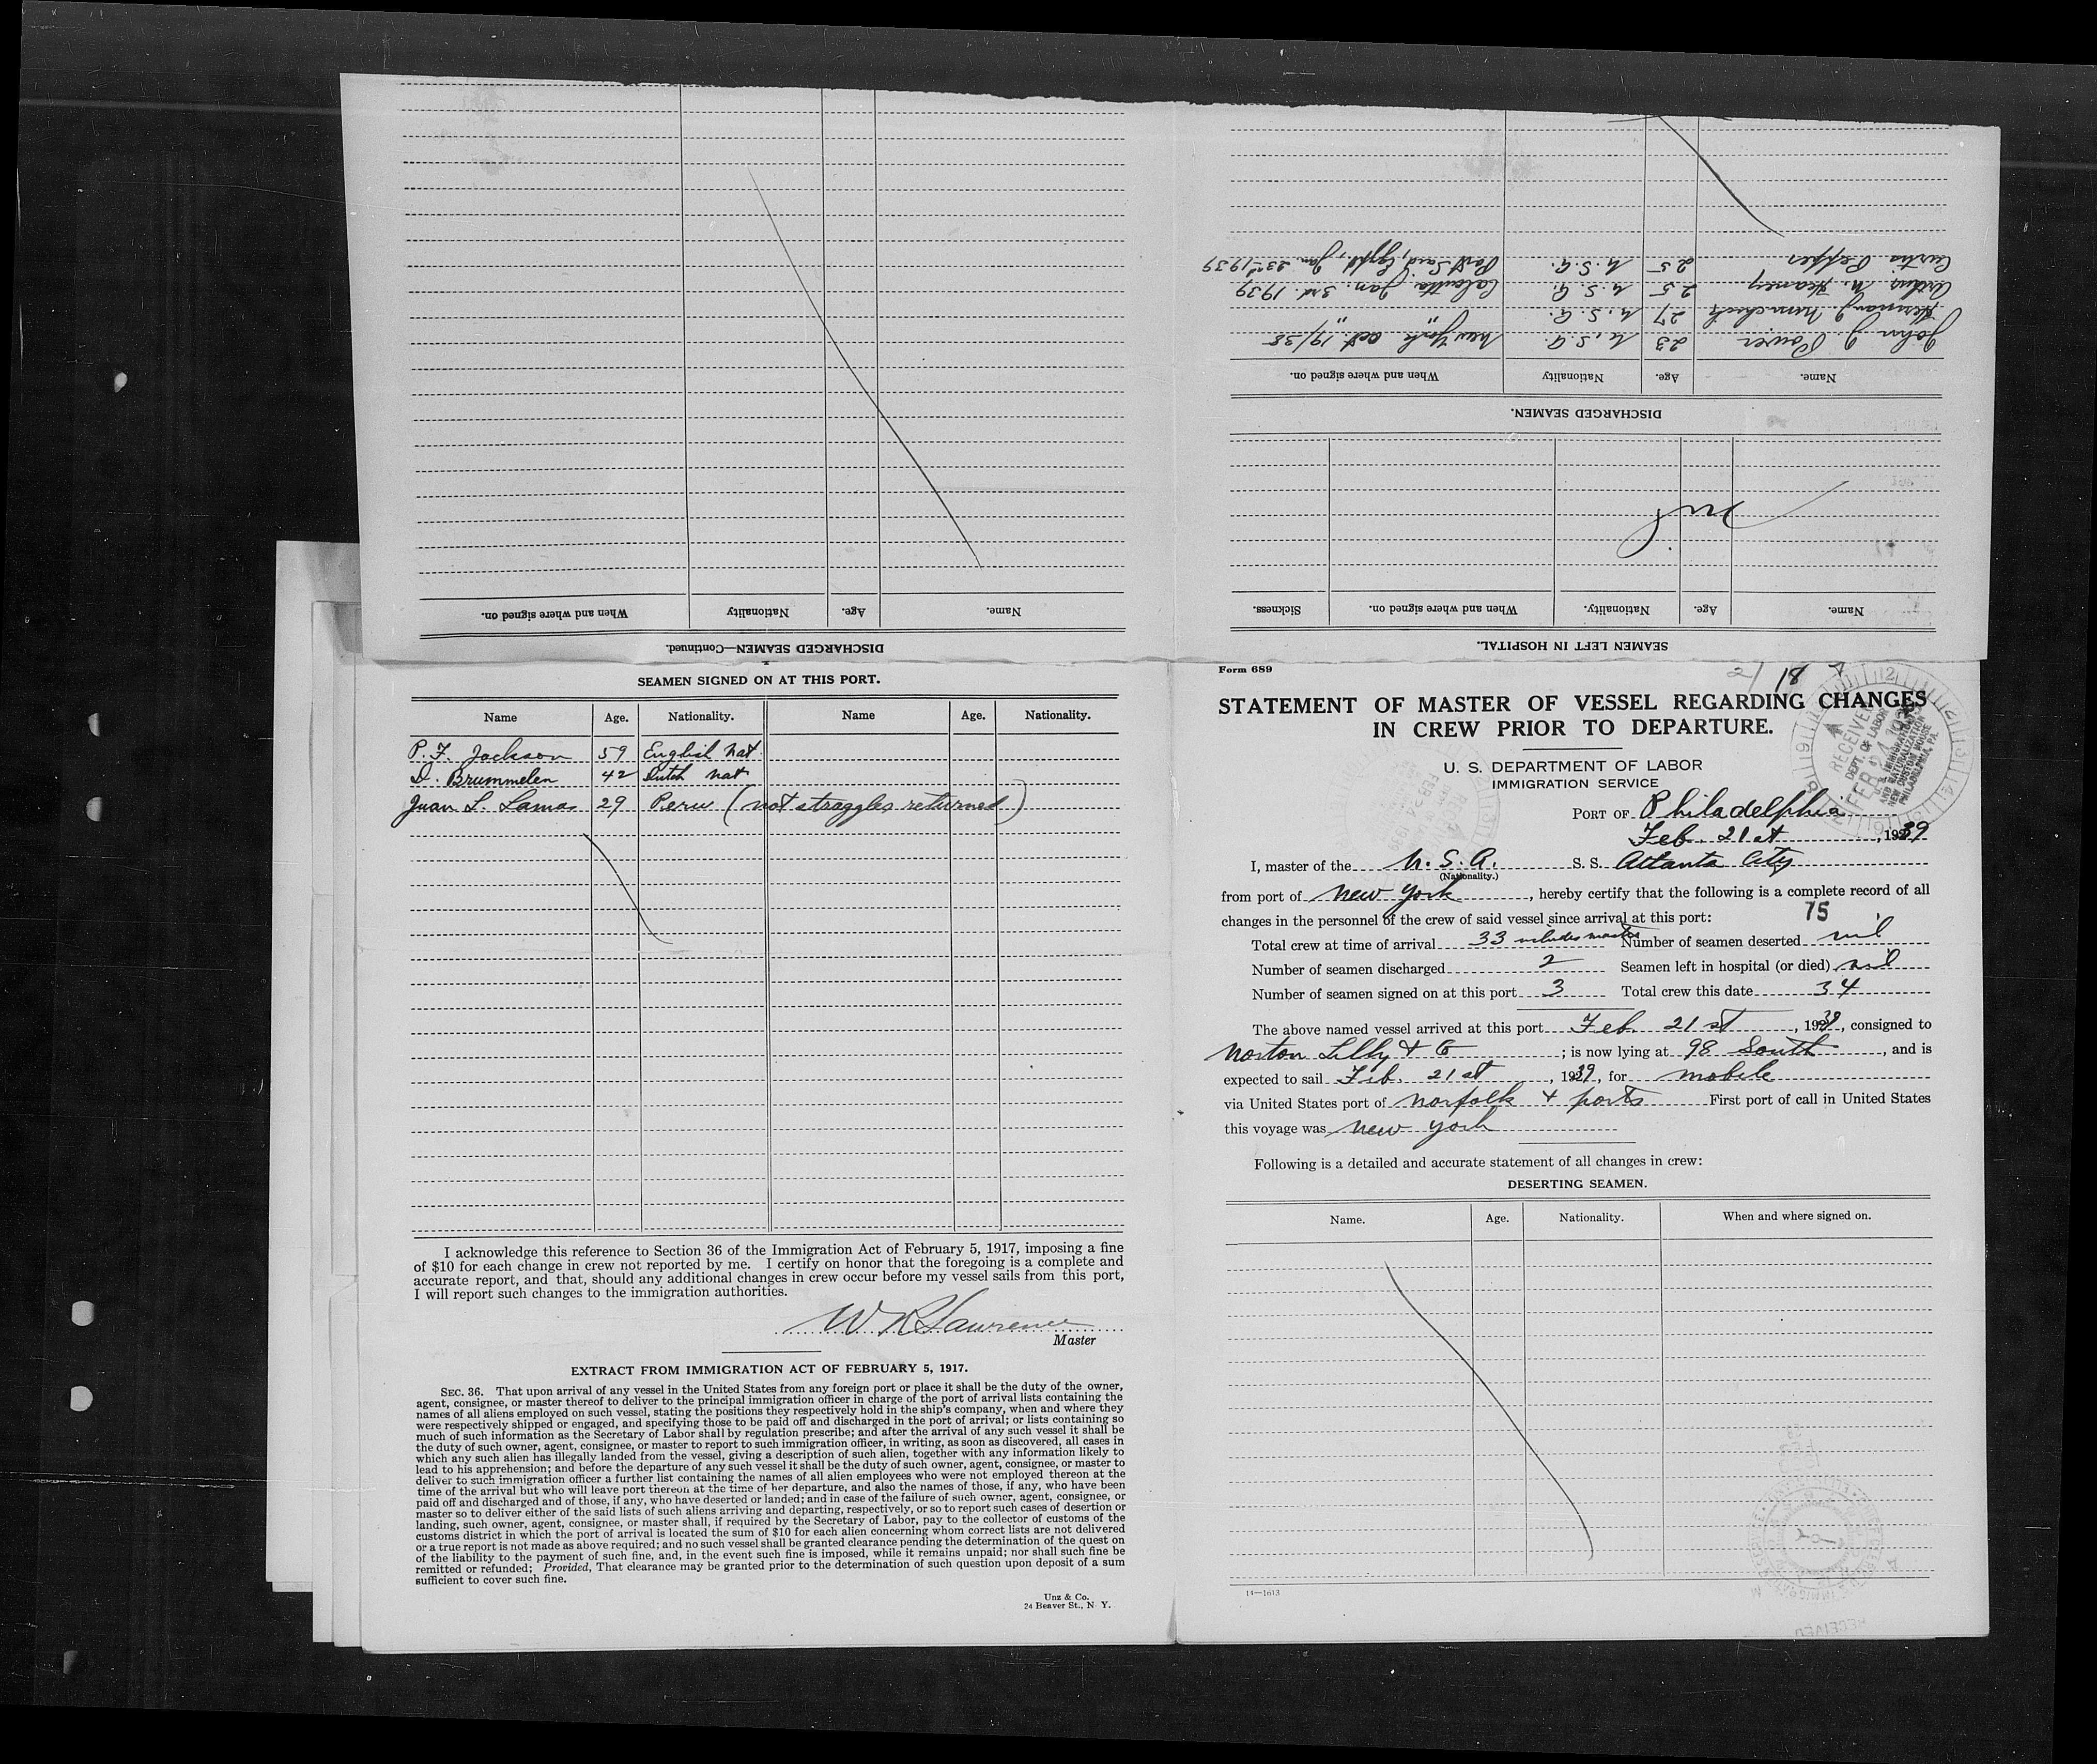 Form 689
2/18
STATEMENT OF MASTER OF VESSEL REGARDING CHANGES
IN CREW PRIOR TO DEPARTURE.
U. S. DEPARTMENT OF LABOR
IMMIGRATION SERVICE
RECEIVED
DEPT. OF LABOR
U.S. IMMIGRATION
AND NATURALIZATION
NEW CUSTOM HOUSE
PHILADELPHIA, PA.
PORT OF Philadelphia
Feb. 21st, 1939
I, master of the U.S.A. S. S. Atlanta City
(Nationality.)
from port of New York, hereby certify that the following is a complete record of all
changes in the personnel of the crew of said vessel since arrival at this port:
75
Total crew at time of arrival 33 includes master Number of seamen deserted nil
Number of seamen discharged 2 Seamen left in hospital (or died) nil
Number of seamen signed on at this port 3 Total crew this date 34
The above named vessel arrived at this port Feb. 21st, 1939, consigned to
Norton Lilly & Co; is now lying at 98 South, and is
expected to sail Feb. 21st, 1939, for Mobile
via United States port of Norfolk + ports First port of call in United States
this voyage was New York
Following is a detailed and accurate statement of all changes in crew:
DESERTING SEAMEN.
Name. Age. Nationality. When and where signed on.
14—1613
SEAMEN LEFT IN HOSPITAL.
Name. Age. Nationality. When and where signed on. Sickness.
nil
DISCHARGED SEAMEN.
Name. Age. Nationality When and where signed on.
John J. Power 23 U.S.A. New York Oct. 19/38
Herman J. 27 U.S.A. " "
N. 25 U.S.A. Calcutta Jan. 3rd. 1939
Curtis Pepper 25 U.S.A. Port Said, Egypt, Jan. 23rd 1939
DISCHARGED SEAMEN—Continued.
Name. Age. Nationality When and where signed on.
SEAMEN SIGNED ON AT THIS PORT.
Name Age. Nationality. Name Age. Nationality.
P. F. Jackson 59 English Nat.
D. Brummelen 42 Dutch Nat
Juan L. Lamas 29 Peru (not straggler returned)
I acknowledge this reference to Section 36 of the Immigration Act of February 5, 1917, imposing a fine
of $10 for each change in crew not reported by me. I certify on honor that the foregoing is a complete and
accurate report, and that, should any additional changes in crew occur before my vessel sails from this port,
I will report such changes to the immigration authorities.
W R Lawrence
Master
EXTRACT FROM IMMIGRATION ACT OF FEBRUARY 5, 1917.
SEC. 36. That upon arrival of any vessel in the United States from any foreign port or place it shall be the duty of the owner,
agent, consignee, or master thereof to deliver to the principal immigration officer in charge of the port of arrival lists containing the
names of all aliens employed on such vessel, stating the positions they respectively hold in the ship's company, when and where they
were respectively shipped or engaged, and specifying those to be paid off and discharged in the port of arrival; or lists containing so
much of such information as the Secretary of Labor shall by regulation prescribe; and after the arrival of any such vessel it shall be
the duty of such owner, agent, consignee, or master to report to such immigration officer, in writing, as soon as discovered, all cases in
which any such alien has illegally landed from the vessel, giving a description of such alien, together with any information likely to
lead to his apprehension; and before the departure of any such vessel it shall be the duty of such owner, agent, consignee, or master to
deliver to such immigration officer a further list containing the names of all alien employees who were not employed thereon at the
time of the arrival but who will leave port thereon at the time of her departure, and also the names of those, if any, who have been
paid off and discharged and of those, if any, who have deserted or landed; and in case of the failure of such owner, agent, consignee, or
master so to deliver either of the said lists of such aliens arriving and departing, respectively, or so to report such cases of desertion or
landing, such owner, agent, consignee, or master shall, if required by the Secretary of Labor, pay to the collector of customs of the
customs district in which the port of arrival is located the sum of $10 for each alien concerning whom correct lists are not delivered
or a true report is not made as above required; and no such vessel shall be granted clearance pending the determination of the quest on
of the liability to the payment of such fine, and, in the event such fine is imposed, while it remains unpaid; nor shall such fine be
remitted or refunded; Provided, That clearance may be granted prior to the determination of such question upon deposit of a sum
sufficient to cover such fine.
Unz & Co.
24 Beaver St., N. Y.